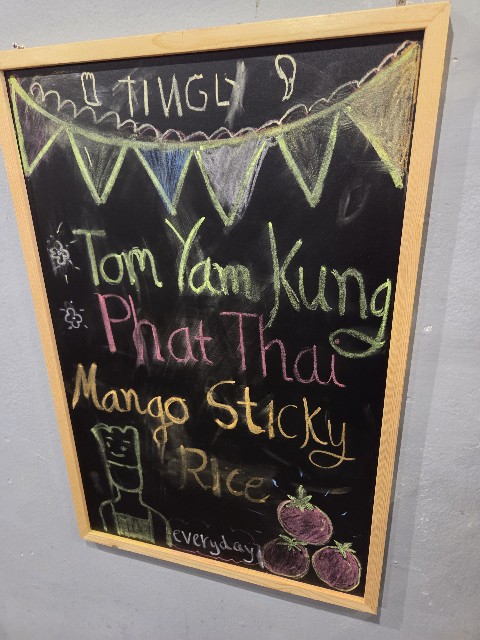 TINGLY
Tom Yam Kung
Phat Thai
Mango Sticky
Rice
everyday